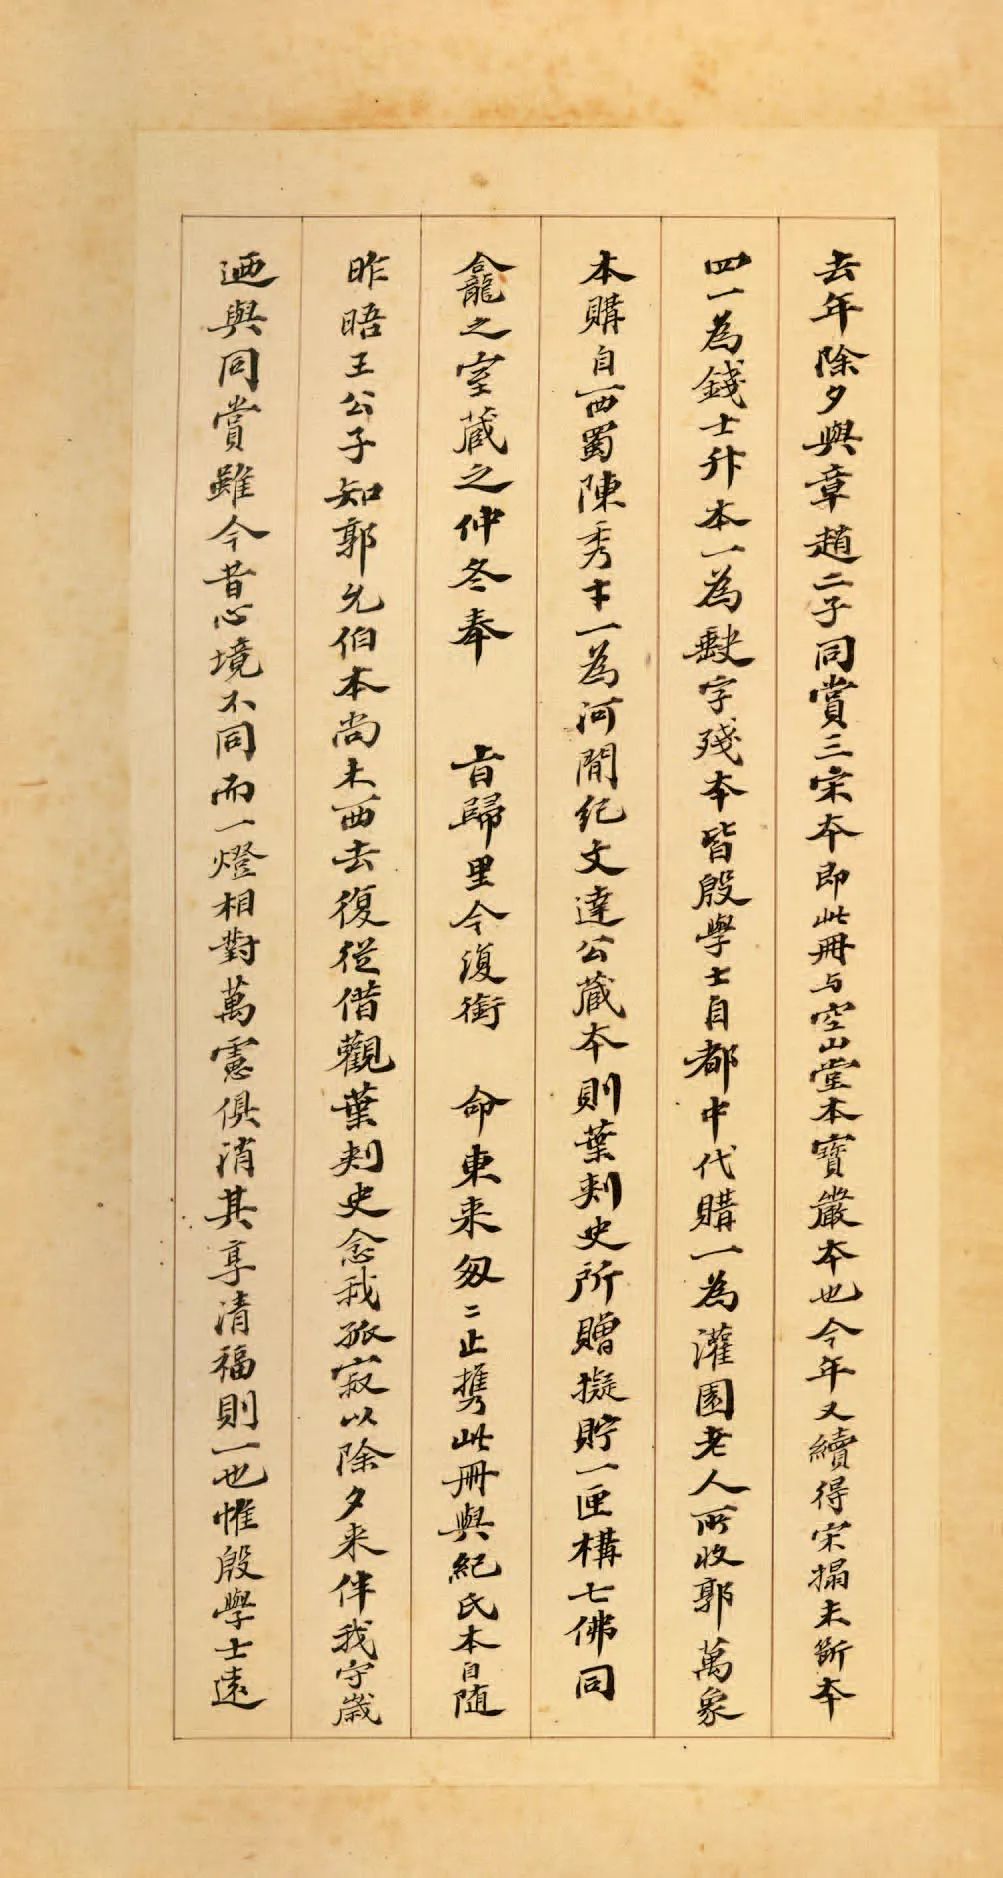 去年除夕與章趙二子同賞三宋本即此冊与空山堂本寶嚴本也今年又續得宋搨未斷本
四一為錢士升本一為缺字殘本皆殷學士自都中代購一為灌園老人所收郭萬象
本購自西蜀陳秀才一為河間紀文達公藏本則葉刺史所贈擬貯一匣構七佛同
龕之室藏之仲冬奉 旨歸里今復銜 命東来匆二止攜此冊與紀氏本自随
昨晤王公子知郭允伯本尚未西去復從借觀葉刺史念我孤寂以除夕来伴我守歲
迺與同賞雖今昔心境不同而一燈相對萬慮俱消其享清福則一也惟殷學士遠